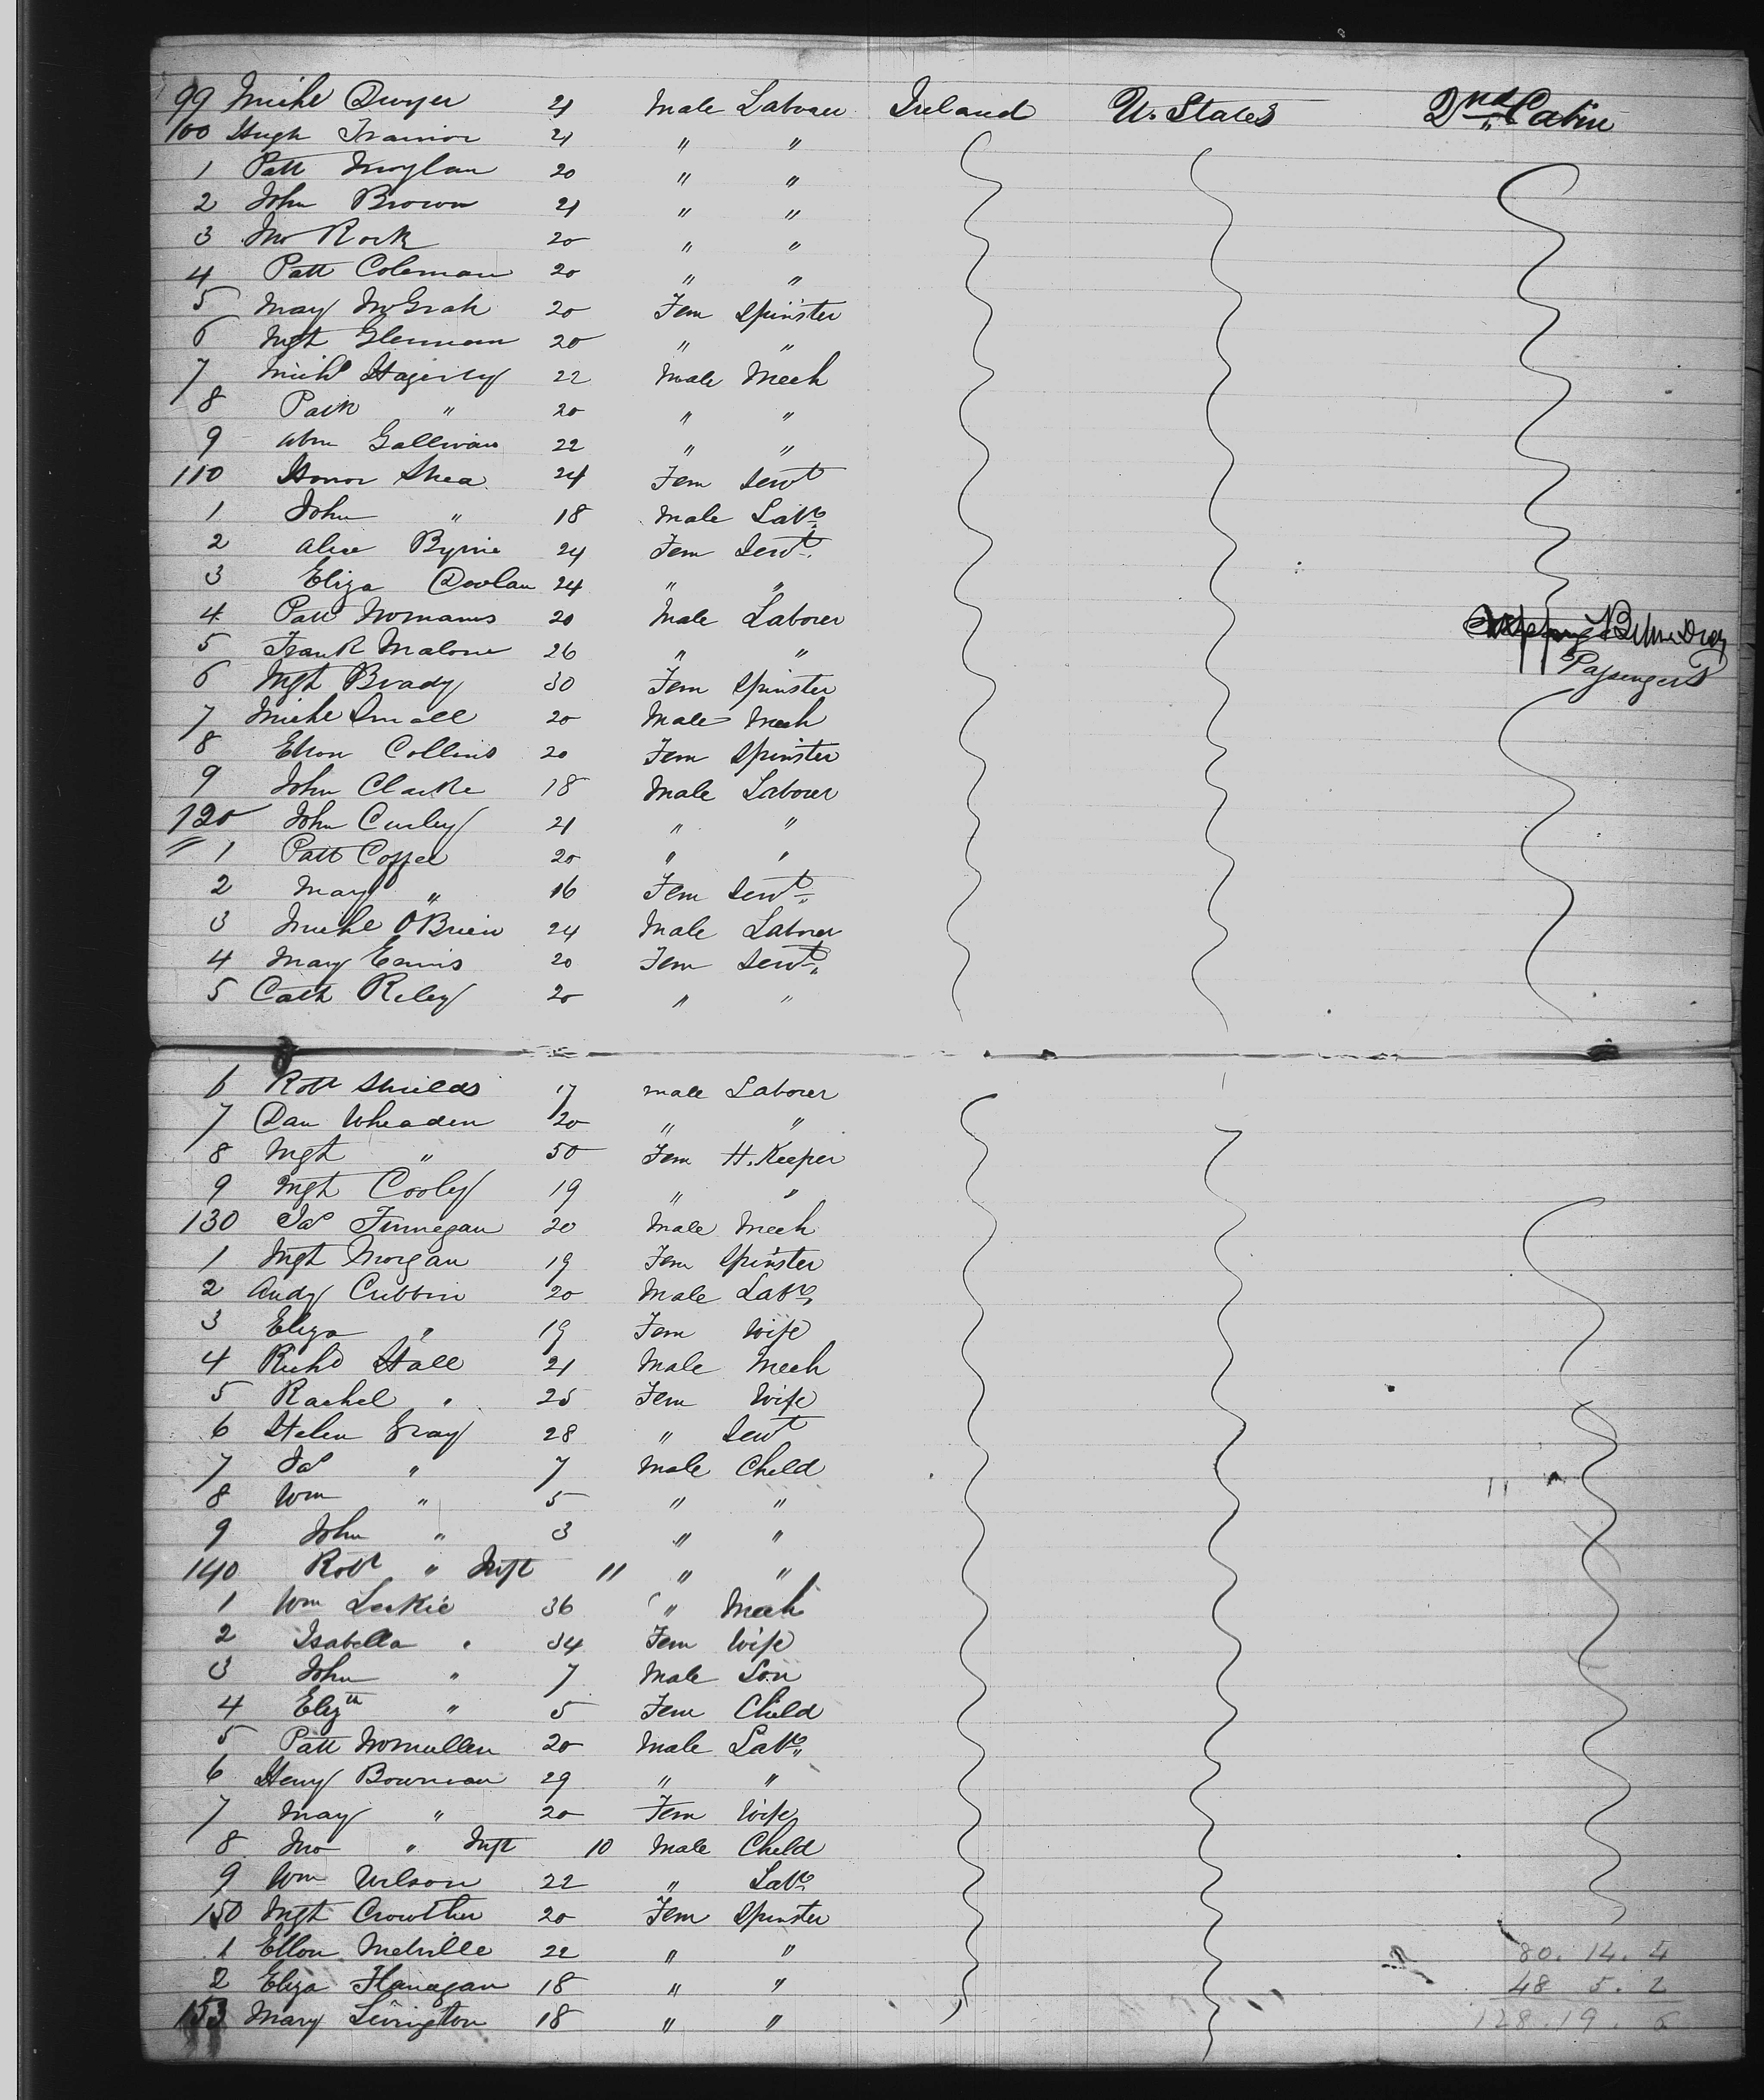 99 Michl Dwyer 21 Male Laborer Ireland U. States 2nd Cabin
100 Hugh Trainor 21 " "
1 Patt Moylan 20 " "
2 John Brown 21 " "
3 Jno Rock 20 " "
4 Patt Coleman 20 " "
5 Mary McGrah 20 Fem Spinster
6 Mgt Glennan 20 " "
7 Michl Hagerty 22 Male Mech
8 Patk " 20 " "
9 Wm Gallivan 22 " "
110 Honor Shea 24 Fem Servt
1 John " 18 Male Labr
2 Alice Byrne 24 Fem Servt
3 Eliza Doolan 24 " "
4 Patt McManus 20 Male Laborer
5 Frank Malone 26 " "
Passengers
6 Mgt Brady 30 Fem Spinster
7 Michl Small 20 Male Mech
8 Ellon Collins 20 Fem Spinster
9 John Clarke 18 Male Laborer
120 John Curley 21 " "
1 Patt Coffee 20 " "
2 Mary " 16 Fem Servt
3 Michl O'Brien 24 Male Laborer
4 Mary Ennis 20 Fem Servt
5 Cath Riley 20 " "
6 Robt Shields 17 Male Laborer
7 Dan Wheaden 20 " "
8 Mgt " 50 Fem H. Keeper
9 Mgt Cooley 19 " "
130 Jas Finnegan 20 Male Mech
1 Mgt Morgan 19 Fem Spinster
2 Andy Cubbin 20 Male Labr
3 Eliza " 19 Fem Wife
4 Richd Hall 21 Male Mech
5 Rachel " 25 Fem Wife
6 Helen Gray 28 " Servt
7 Jas " 7 Male Child
8 Wm " 5 " "
9 John " 3 " "
140 Robt " Inft 11 " "
1 Wm Leckie 36 " Mech
2 Isabella " 34 Fem Wife
3 John " 7 Male Son
4 Elizth " 5 Fem Child
5 Patt McMullen 20 Male Labr
6 Henry Bowman 29 " "
7 Mary " 20 Fem Wife
8 Jno " Inft 10 Male Child
9 Wm Wilson 22 " Labr
150 Mgt Crowther 20 Fem Spinster
1 Ellon Melville 22 " " 80. 14. 4
2 Eliza Flanagan 18 " " 48 5. 2
153 Mary Livington 18 " " 128. 19. 6